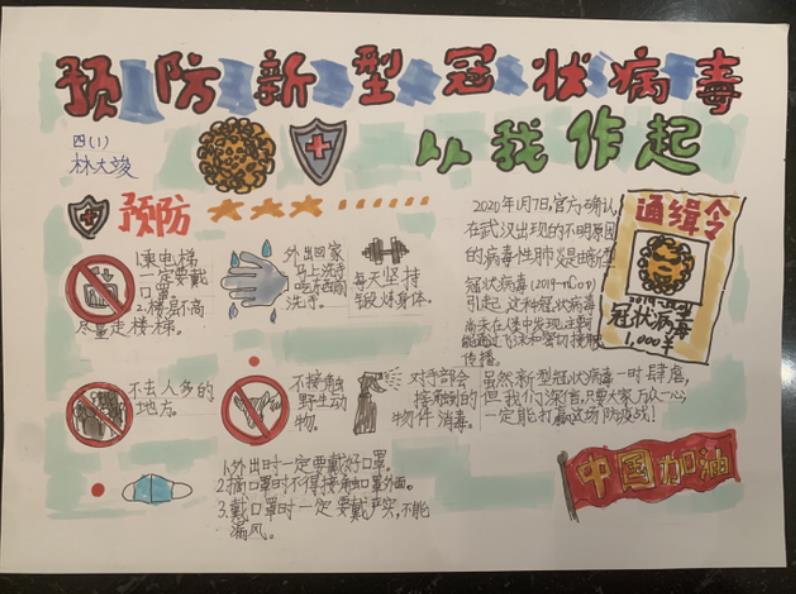 预防新型冠状病毒
从我作起
四(1)
林大竣
预防
1.乘电梯
一定要戴
口罩。
2.楼层不高
尽量走楼梯。
外出回家
马上洗手
吃东西前
洗手。
每天坚持
锻炼身体。
2020年1月7日,官方确认,
在武汉出现的不明原因
的病毒性肺炎是由新型
冠状病毒(2019-nCoV)
引起,这种冠状病毒
尚未在人类中发现,主要可
能通过飞沫和密切接触
传播。
通缉令
2019-新型
冠状病毒
1,000¥
不去人多的
地方。
不接触
野生动
物。
对手部会
接触到的
物件消毒。
虽然新型冠状病毒一时肆虐,
但我们深信,只要大家万众一心,
一定能打赢这场防疫战!
1.外出时一定要戴好口罩。
2.摘口罩时不得接触口罩外面。
3.戴口罩时一定要戴严实,不能
漏风。
中国加油